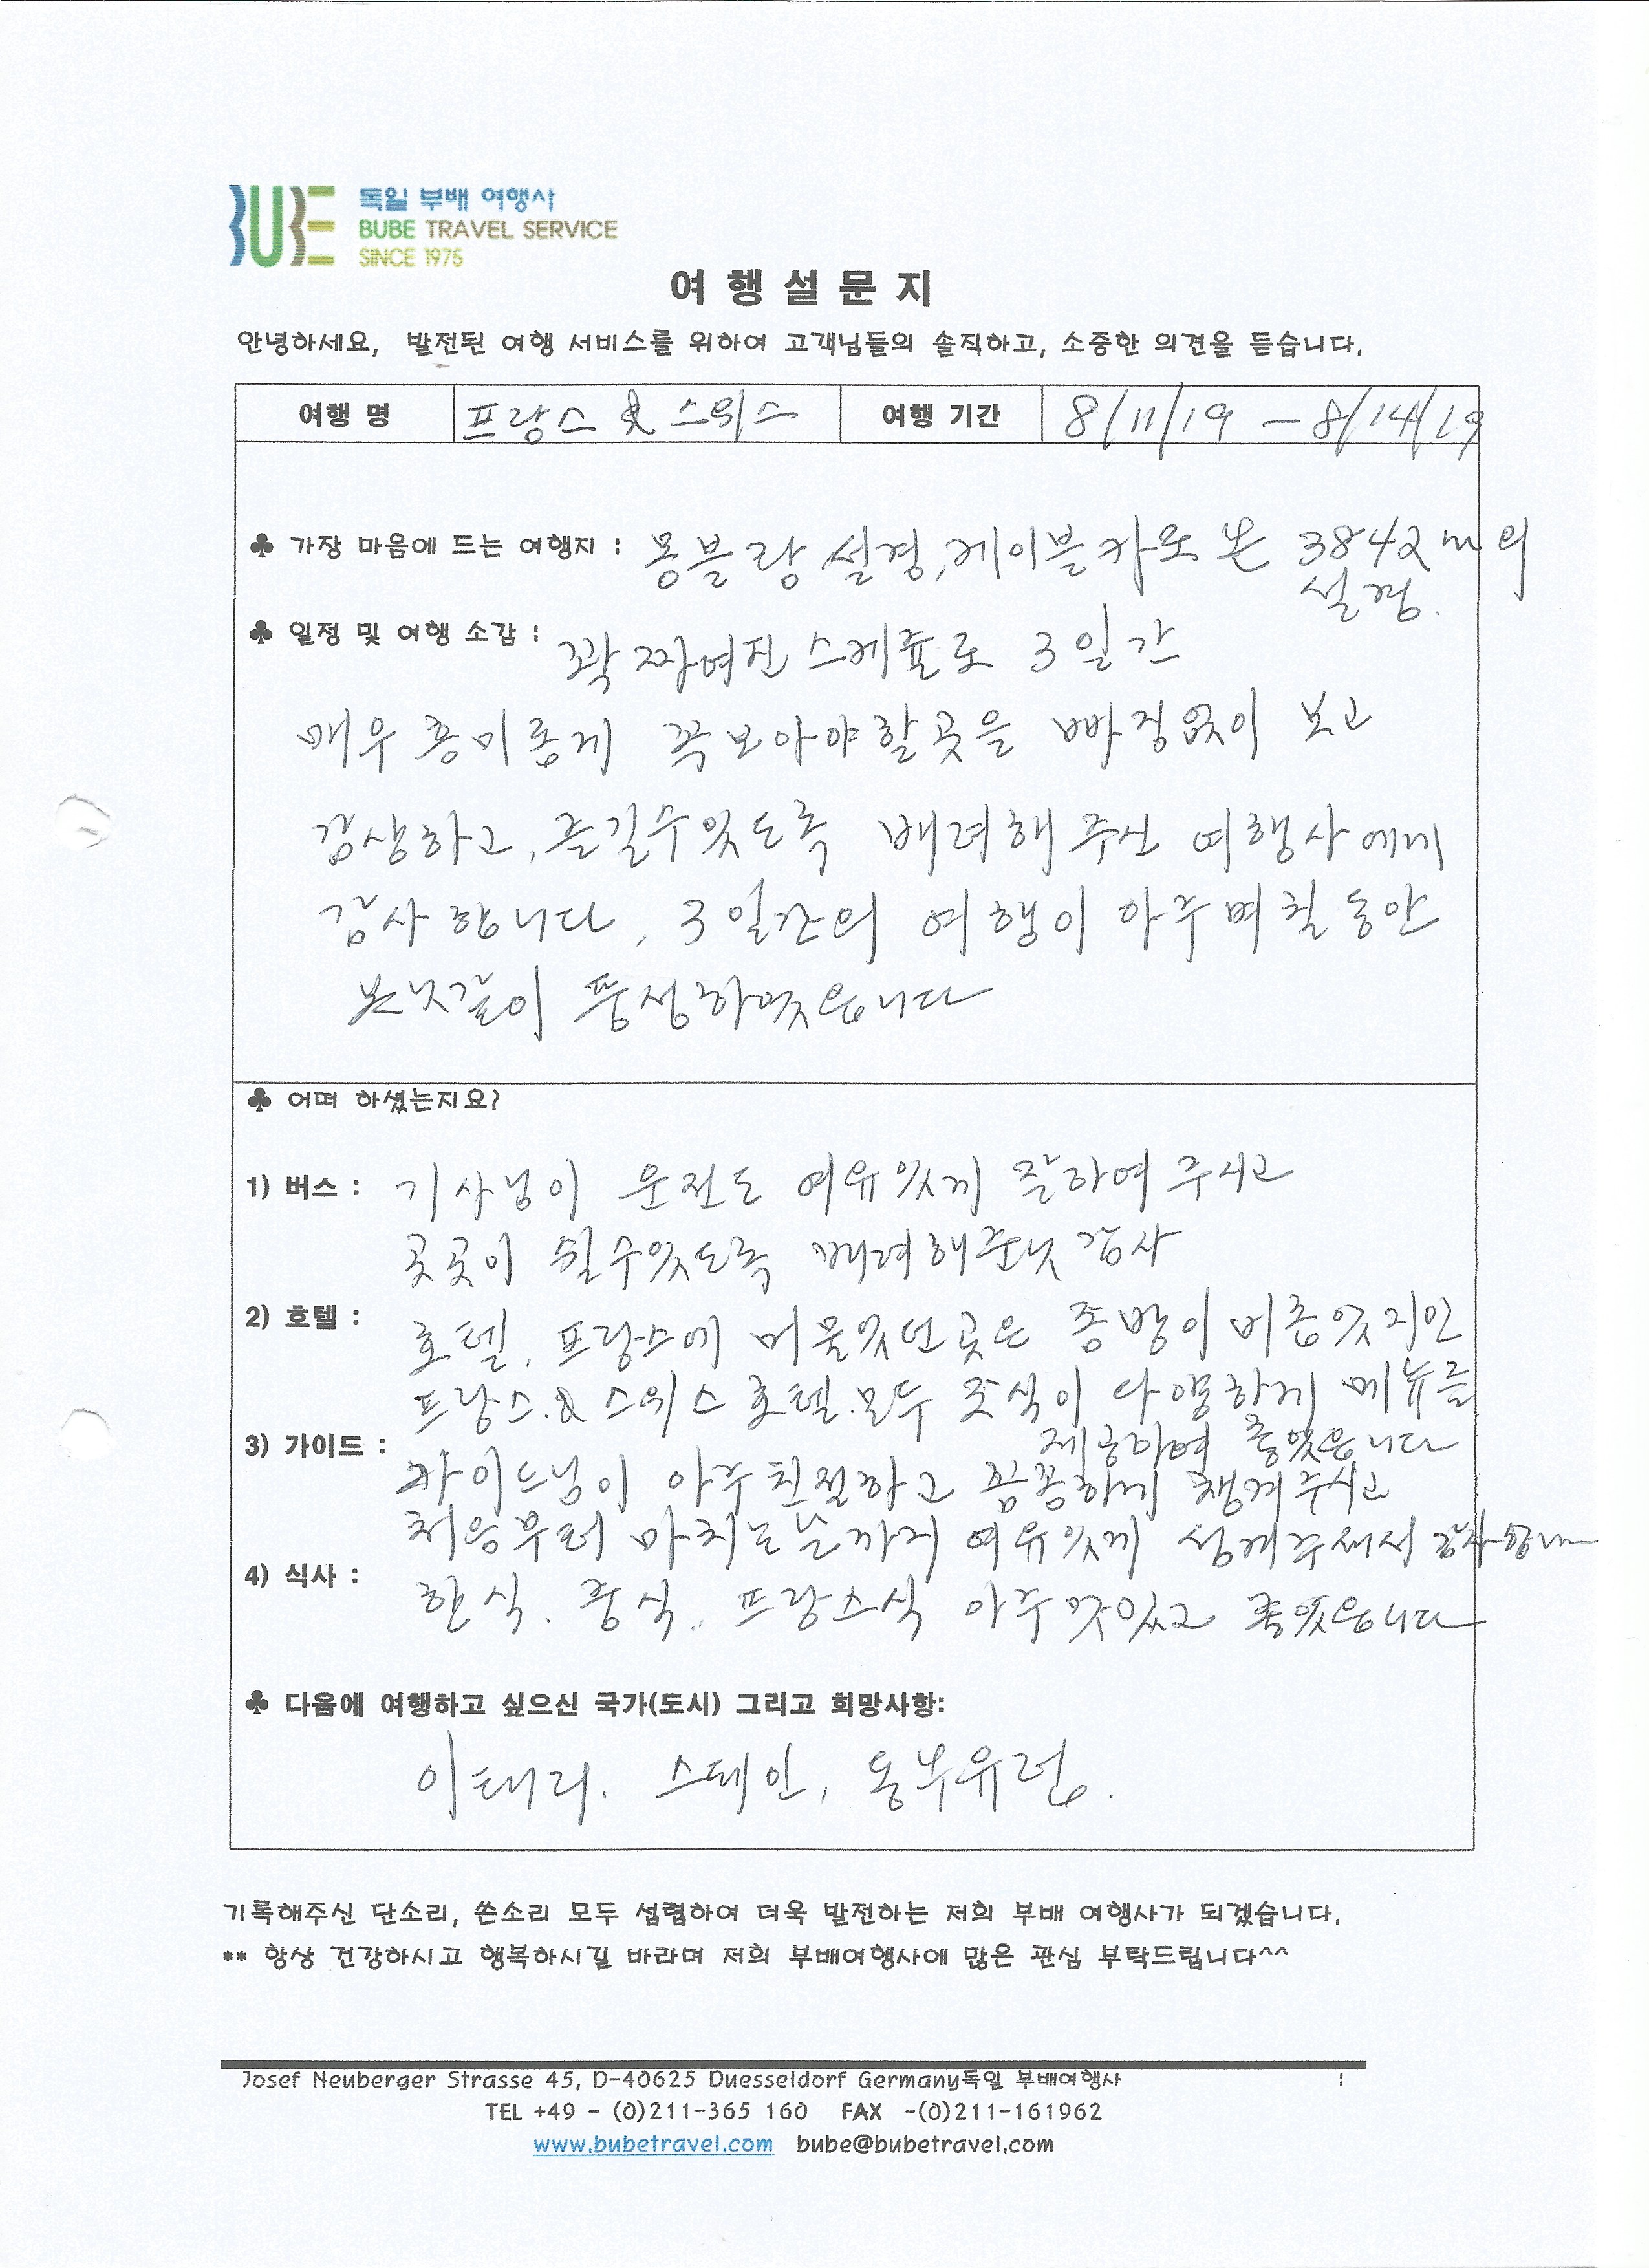 BUBE
독일 부배 여행사
BUBE TRAVEL SERVICE
SINCE 1975
여 행 설 문 지
안녕하세요, 발전된 여행 서비스를 위하여 고객님들의 솔직하고, 소중한 의견을 듣습니다.
여행 명 프랑스 & 스위스 여행 기간 8/11/19 - 8/14/19
♣ 가장 마음에 드는 여행지 : 몽블랑 설경, 케이블카로 본 3842m의
설경.
♣ 일정 및 여행 소감 : 꽉 짜여진 스케쥴로 3일간
매우 흥미롭게 꼭 보아야할 곳을 빠짐없이 보고
감상하고, 즐길수있도록 배려해 주신 여행사에게
감사합니다, 3일간의 여행이 아주 며칠동안
본것같이 풍성하였읍니다
♣ 어떠 하셨는지요?
1) 버스 : 기사님이 운전도 여유있게 잘하여 주시고
곳곳이 쉴수있도록 배려해준것 감사
2) 호텔 : 호텔, 프랑스에 머물었던 곳은 좀 방이 비좁았지만
프랑스.& 스위스 호텔.모두 조식이 다양하게 메뉴를
제공하여 좋았읍니다
3) 가이드 : 가이드님이 아주 친절하고 꼼꼼하게 챙겨주시고
처음부터 마치는날까지 여유있게 섬겨주셔서 감사합니다
4) 식사 : 한식. 중식.. 프랑스식 아주 맛있고 좋았읍니다
♣ 다음에 여행하고 싶으신 국가(도시) 그리고 희망사항:
이태리. 스페인, 동부유럽.
기록해주신 단소리, 쓴소리 모두 섭렵하여 더욱 발전하는 저희 부배 여행사가 되겠습니다.
** 항상 건강하시고 행복하시길 바라며 저희 부배여행사에 많은 관심 부탁드립니다^^
Josef Neuberger Strasse 45, D-40625 Duesseldorf Germany독일 부배여행사 :
TEL +49 - (0)211-365 160 FAX -(0)211-161962
www.bubetravel.com bube@bubetravel.com